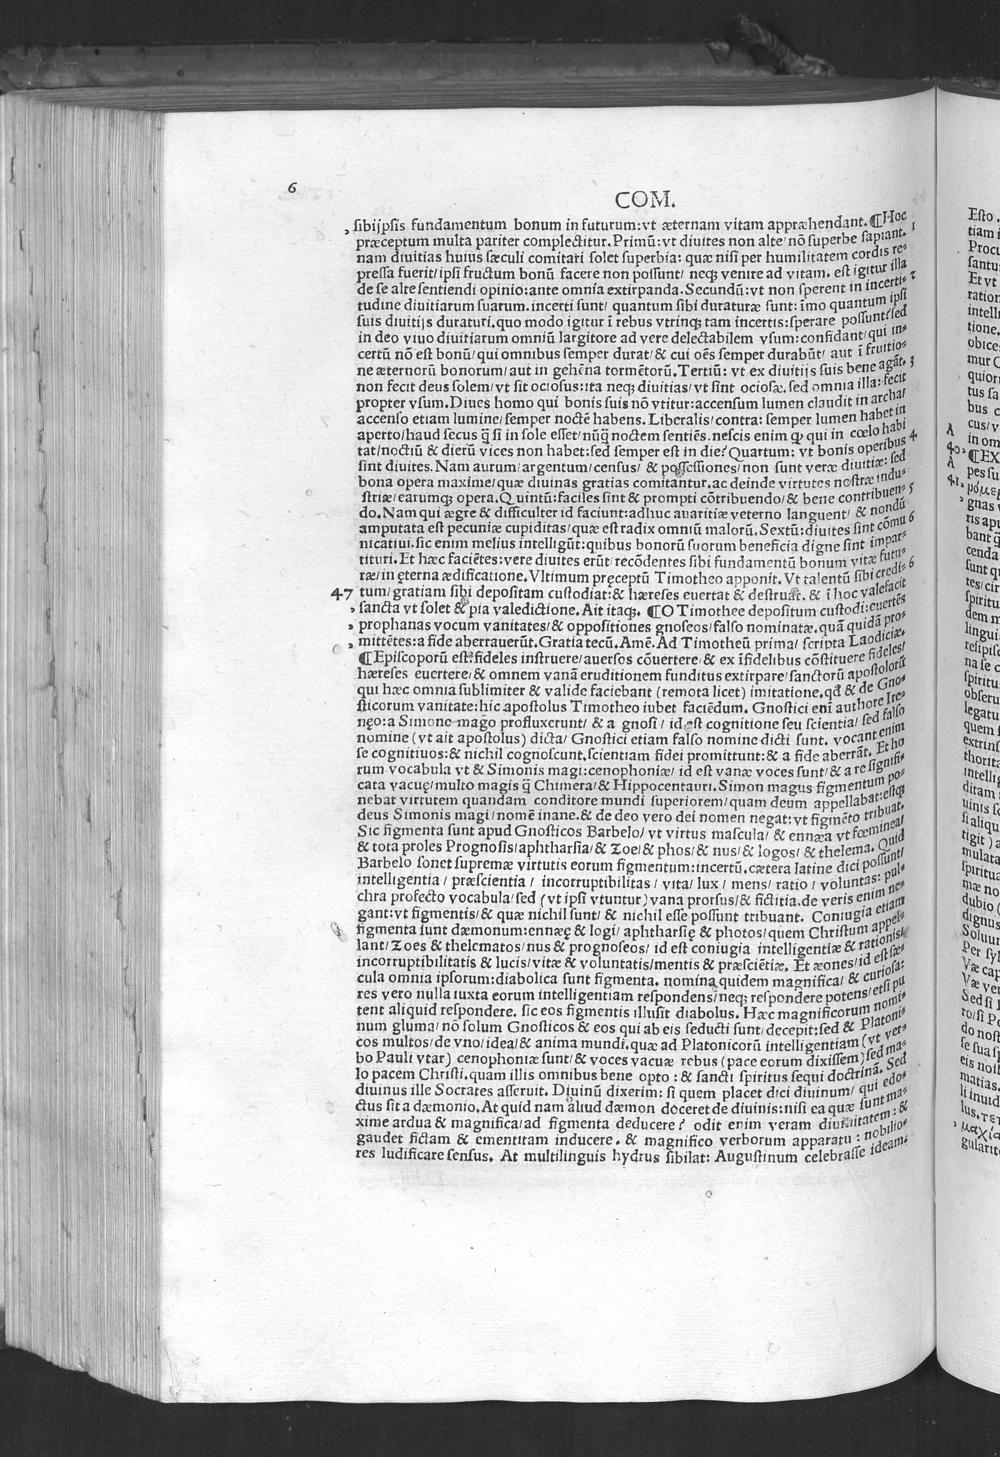 6
COM.
, sibijpsis fundamentum bonum in futurum:vt æternam vitam appræhendant.¶Hoc
præceptum multa pariter complectitur.Primū:vt diuites non alte/nō superbe sapiant. 1
nam diuitias huius sæculi comitari solet superbia: quæ nisi per humilitatem cordis re⸗
pressa fuerit/ipsi fructum bonū facere non possunt/ neq; venire ad vitam. est igitur illa
de se alte sentiendi opinio:ante omnia extirpanda.Secundū:vt non sperent in incerti⸗ 2
tudine diuitiarum suarum.incerti sunt/ quantum sibi duraturæ sunt: īmo quantum ipsi
suis diuitijs duraturi.quo modo igitur ī rebus vtrinq; tam incertis:sperare possunt/sed
in deo viuo diuitiarum omniū largitore ad vere delectabilem vsum:confidant/qui in⸗
certū nō est bonū/qui omnibus semper durat/& cui oēs semper durabūt/ aut ī fruitio⸗
ne æternorū bonorum/aut in gehēna tormētorū.Tertiū: vt ex diuitijs suis bene agāt. 3
non fecit deus solem/vt sit ociosus:ita neq; diuitias/vt sint ociosæ.sed omnia illa: fecit
propter vsum.Diues homo qui bonis suis nō vtitur:accensum lumen claudit in archa/
accenso etiam lumine/semper noctē habens.Liberalis/contra: semper lumen habet in
aperto/haud secus q̄ si in sole esset/nūq̄ noctem sentiēs.nescis enim qp qui in cœlo habi
tat/noctiū & dierū vices non habet:sed semper est in die? Quartum: vt bonis operibus 4
sint diuites.Nam aurum/argentum/census/ & possessiones/non sunt veræ diuitiæ: sed
bona opera maxime/quæ diuinas gratias comitantur.ac deinde virtutes nostræ indu⸗
striæ/earumq; opera.Quintū:faciles sint & prompti cōtribuendo/& bene contribuen⸗ 5
do.Nam qui ægre & difficulter id faciunt:adhuc auaritiæ veterno languent/ & nondū
amputata est pecuniæ cupiditas/quæ est radix omniū malorū.Sextū:diuites sint cōmu 6
nicatiui.sic enim melius intelligūt:quibus bonorū suorum beneficia digne sint impar⸗
tituri.Et hæc faciētes:vere diuites erūt/recōdentes sibi fundamentū bonum vitæ futu⸗
ræ/in ęterna ædificatione.Vltimum pręceptū Timotheo apponit.Vt talentū sibi credi⸗ 6
47 tum/gratiam sibi depositam custodiat:& hæreses euertat & destruat. & ī hoc valefacit
, sancta vt solet & pia valedictione.Ait itaq;. ¶O Timothee depositum custodi:euertēs
, prophanas vocum vanitates/& oppositiones gnoseos/falso nominatæ.quā quidā pro⸗
, mittētes:a fide aberrauerūt.Gratia tecū.Amē.Ad Timotheū prima/ scripta Laodiciæ.
¶Episcoporū est:fideles instruere/auersos cōuertere & ex īfidelibus cōstituere fideles/
hæreses euertere/& omnem vanā eruditionem funditus extirpare/sanctorū apostolorū
qui hæc omnia sublimiter & valide faciebant (remota licet) imitatione.qd & de Gno⸗
sticorum vanitate:hic apostolus Timotheo iubet faciēdum. Gnostici enī authore Ire⸗
nęo:a Simone mago profluxerunt/ & a gnosi / id est cognitione seu scientia/ sed falso
nomine (vt ait apostolus) dicta/ Gnostici etiam falso nomine dicti sunt. vocant enim
se cognitiuos:& nichil cognoscunt.scientiam fidei promittunt:& a fide aberrāt. Et ho
rum vocabula vt & Simonis magi:cenophoniæ/ id est vanæ voces sunt/& a re signifi⸗
cata vacuę/multo magis q̄ Chimera/& Hippocentauri.Simon magus figmentum po⸗
nebat virtutem quandam conditore mundi superiorem/quam deum appellabat:estq;
deus Simonis magi/nomē inane.& de deo vero dei nomen negat:vt figmēto tribuat.
Sic figmenta sunt apud Gnosticos Barbelo/ vt virtus mascula/ & ennæa vt fœminea/
& tota proles Prognosis/aphtharsia/& Zoe/& phos/& nus/& logos/ & thelema. Quid
Barbelo sonet supremæ virtutis eorum figmentum:incertū.cætera latine dici possunt/
intelligentia / præscientia / incorruptibilitas / vita/ lux / mens/ ratio / voluntas: pul⸗
chra profecto vocabula/sed (vt ipsi vtuntur) vana prorsus/& fictitia.de veris enim ne⸗
gant:vt figmentis/& quæ nichil sunt/ & nichil esse possunt tribuant. Coniugia etiam
figmenta sunt dæmonum:ennæę & logi/ aphtharsię & photos/quem Christum appel⸗
lant/Zoes & thelematos/nus & prognoseos/ id est coniugia intelligentiæ & rationis/
incorruptibilitatis & lucis/vitæ & voluntatis/mentis & præsciētiæ. Et æones/id est sæ⸗
cula omnia ipsorum:diabolica sunt figmenta. nomina quidem magnifica/ & curiosa:
res vero nulla iuxta eorum intelligentiam respondens/neq; respondere potens/etsi pu
tent aliquid respondere. sic eos figmentis illusit diabolus. Hæc magnificorum nomi⸗
num gluma/ nō solum Gnosticos & eos qui ab eis seducti sunt/decepit:sed & Platoni⸗
cos multos/de vno/idea/& anima mundi.quæ ad Platonicorū intelligentiam (vt ver⸗
bo Pauli vtar) cenophoniæ sunt/& voces vacuæ rebus (pace eorum dixissem) sed ma⸗
lo pacem Christi.quam illis omnibus bene opto : & sancti spiritus sequi doctrinā. Sed
diuinus ille Socrates asseruit. Diuinū dixerim: si quem placet dici diuinum/ qui edo⸗
ctus sit a dæmonio.At quid nam aliud dæmon doceret de diuinis:nisi ea quæ sunt ma⸗
xime ardua & magnifica/ad figmenta deducere? odit enim veram diuinitatem: &
gaudet fictam & ementitam inducere. & magnifico verborum apparatu : nobilio⸗
res ludificare sensus. At multilinguis hydrus sibilat: Augustinum celebrasse ideam: